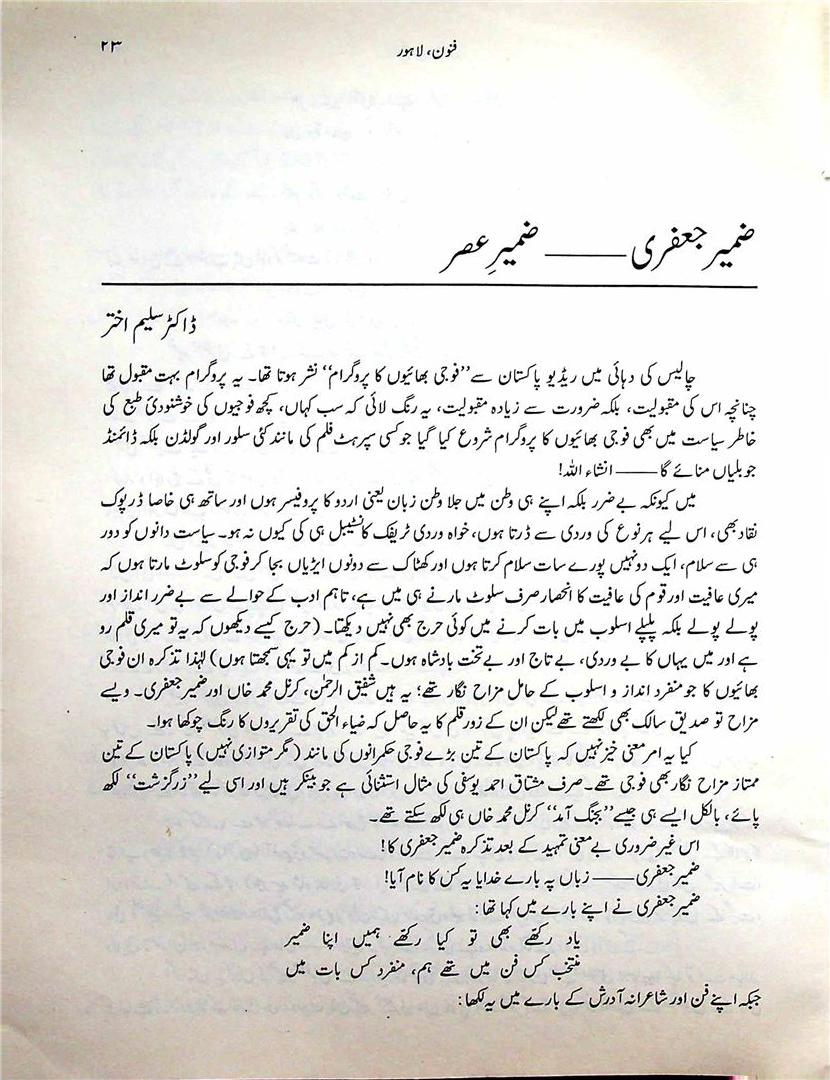 فنون، لاہور ۲۳
ضمیر جعفری —— ضمیرِ عصر
ڈاکٹر سلیم اختر
چالیس کی دہائی میں ریڈیو پاکستان سے ”فوجی بھائیوں کا پروگرام“ نشر ہوتا تھا۔ یہ پروگرام بہت مقبول تھا
چنانچہ اس کی مقبولیت، بلکہ ضرورت سے زیادہ مقبولیت، یہ رنگ لائی کہ سب کہاں، کچھ فوجیوں کی خوشنودیٔ طبع کی
خاطر سیاست میں بھی فوجی بھائیوں کا پروگرام شروع کیا گیا جو کسی سپرہٹ فلم کی مانند کئی سلور اور گولڈن بلکہ ڈائمنڈ
جوبلیاں منائے گا —— انشاء اللہ!
میں کیونکہ بے ضرر بلکہ اپنے ہی وطن میں جلا وطن زبان یعنی اردو کا پروفیسر ہوں اور ساتھ ہی خاصا ڈرپوک
نقاد بھی، اس لیے ہر نوع کی وردی سے ڈرتا ہوں، خواہ وردی ٹریفک کانسٹیبل ہی کی کیوں نہ ہو۔ سیاست دانوں کو دور
ہی سے سلام، ایک دو نہیں پورے سات سلام کرتا ہوں اور کھٹاک سے دونوں ایڑیاں بجا کر فوجی کو سلوٹ مارتا ہوں کہ
میری عافیت اور قوم کی عافیت کا انحصار صرف سلوٹ مارنے ہی میں ہے، تاہم ادب کے حوالے سے بے ضرر انداز اور
پولے پولے بلکہ پلپلے اسلوب میں بات کرنے میں کوئی حرج بھی نہیں دیکھتا۔ (حرج کیسے دیکھوں کہ یہ تو میری قلم رو
ہے اور میں یہاں کا بے وردی، بے تاج اور بے تخت بادشاہ ہوں۔ کم از کم میں تو یہی سمجھتا ہوں) لہٰذا تذکرہ ان فوجی
بھائیوں کا جو منفرد انداز و اسلوب کے حامل مزاح نگار تھے؛ یہ ہیں شفیق الرحمٰن، کرنل محمد خاں اور ضمیر جعفری۔ ویسے
مزاح تو صدیق سالک بھی لکھتے تھے لیکن ان کے زور قلم کا یہ حاصل کہ ضیاء الحق کی تقریروں کا رنگ چوکھا ہوا۔
کیا یہ امر معنی خیز نہیں کہ پاکستان کے تین بڑے فوجی حکمرانوں کی مانند (مگر متوازی نہیں) پاکستان کے تین
ممتاز مزاح نگار بھی فوجی تھے۔ صرف مشتاق احمد یوسفی کی مثال استثنائی ہے جو بینکر ہیں اور اسی لیے ”زرگزشت“ لکھ
پائے، بالکل ایسے ہی جیسے ”بجنگ آمد“ کرنل محمد خاں ہی لکھ سکتے تھے۔
اس غیر ضروری بے معنی تمہید کے بعد تذکرہ ضمیر جعفری کا!
ضمیر جعفری —— زباں پہ بارے خدایا یہ کس کا نام آیا!
ضمیر جعفری نے اپنے بارے میں کہا تھا:
یاد رکھے بھی تو کیا رکھے ہمیں اپنا ضمیر
منتخب کس فن میں تھے ہم، منفرد کس بات میں
جبکہ اپنے فن اور شاعرانہ آدرش کے بارے میں یہ لکھا: